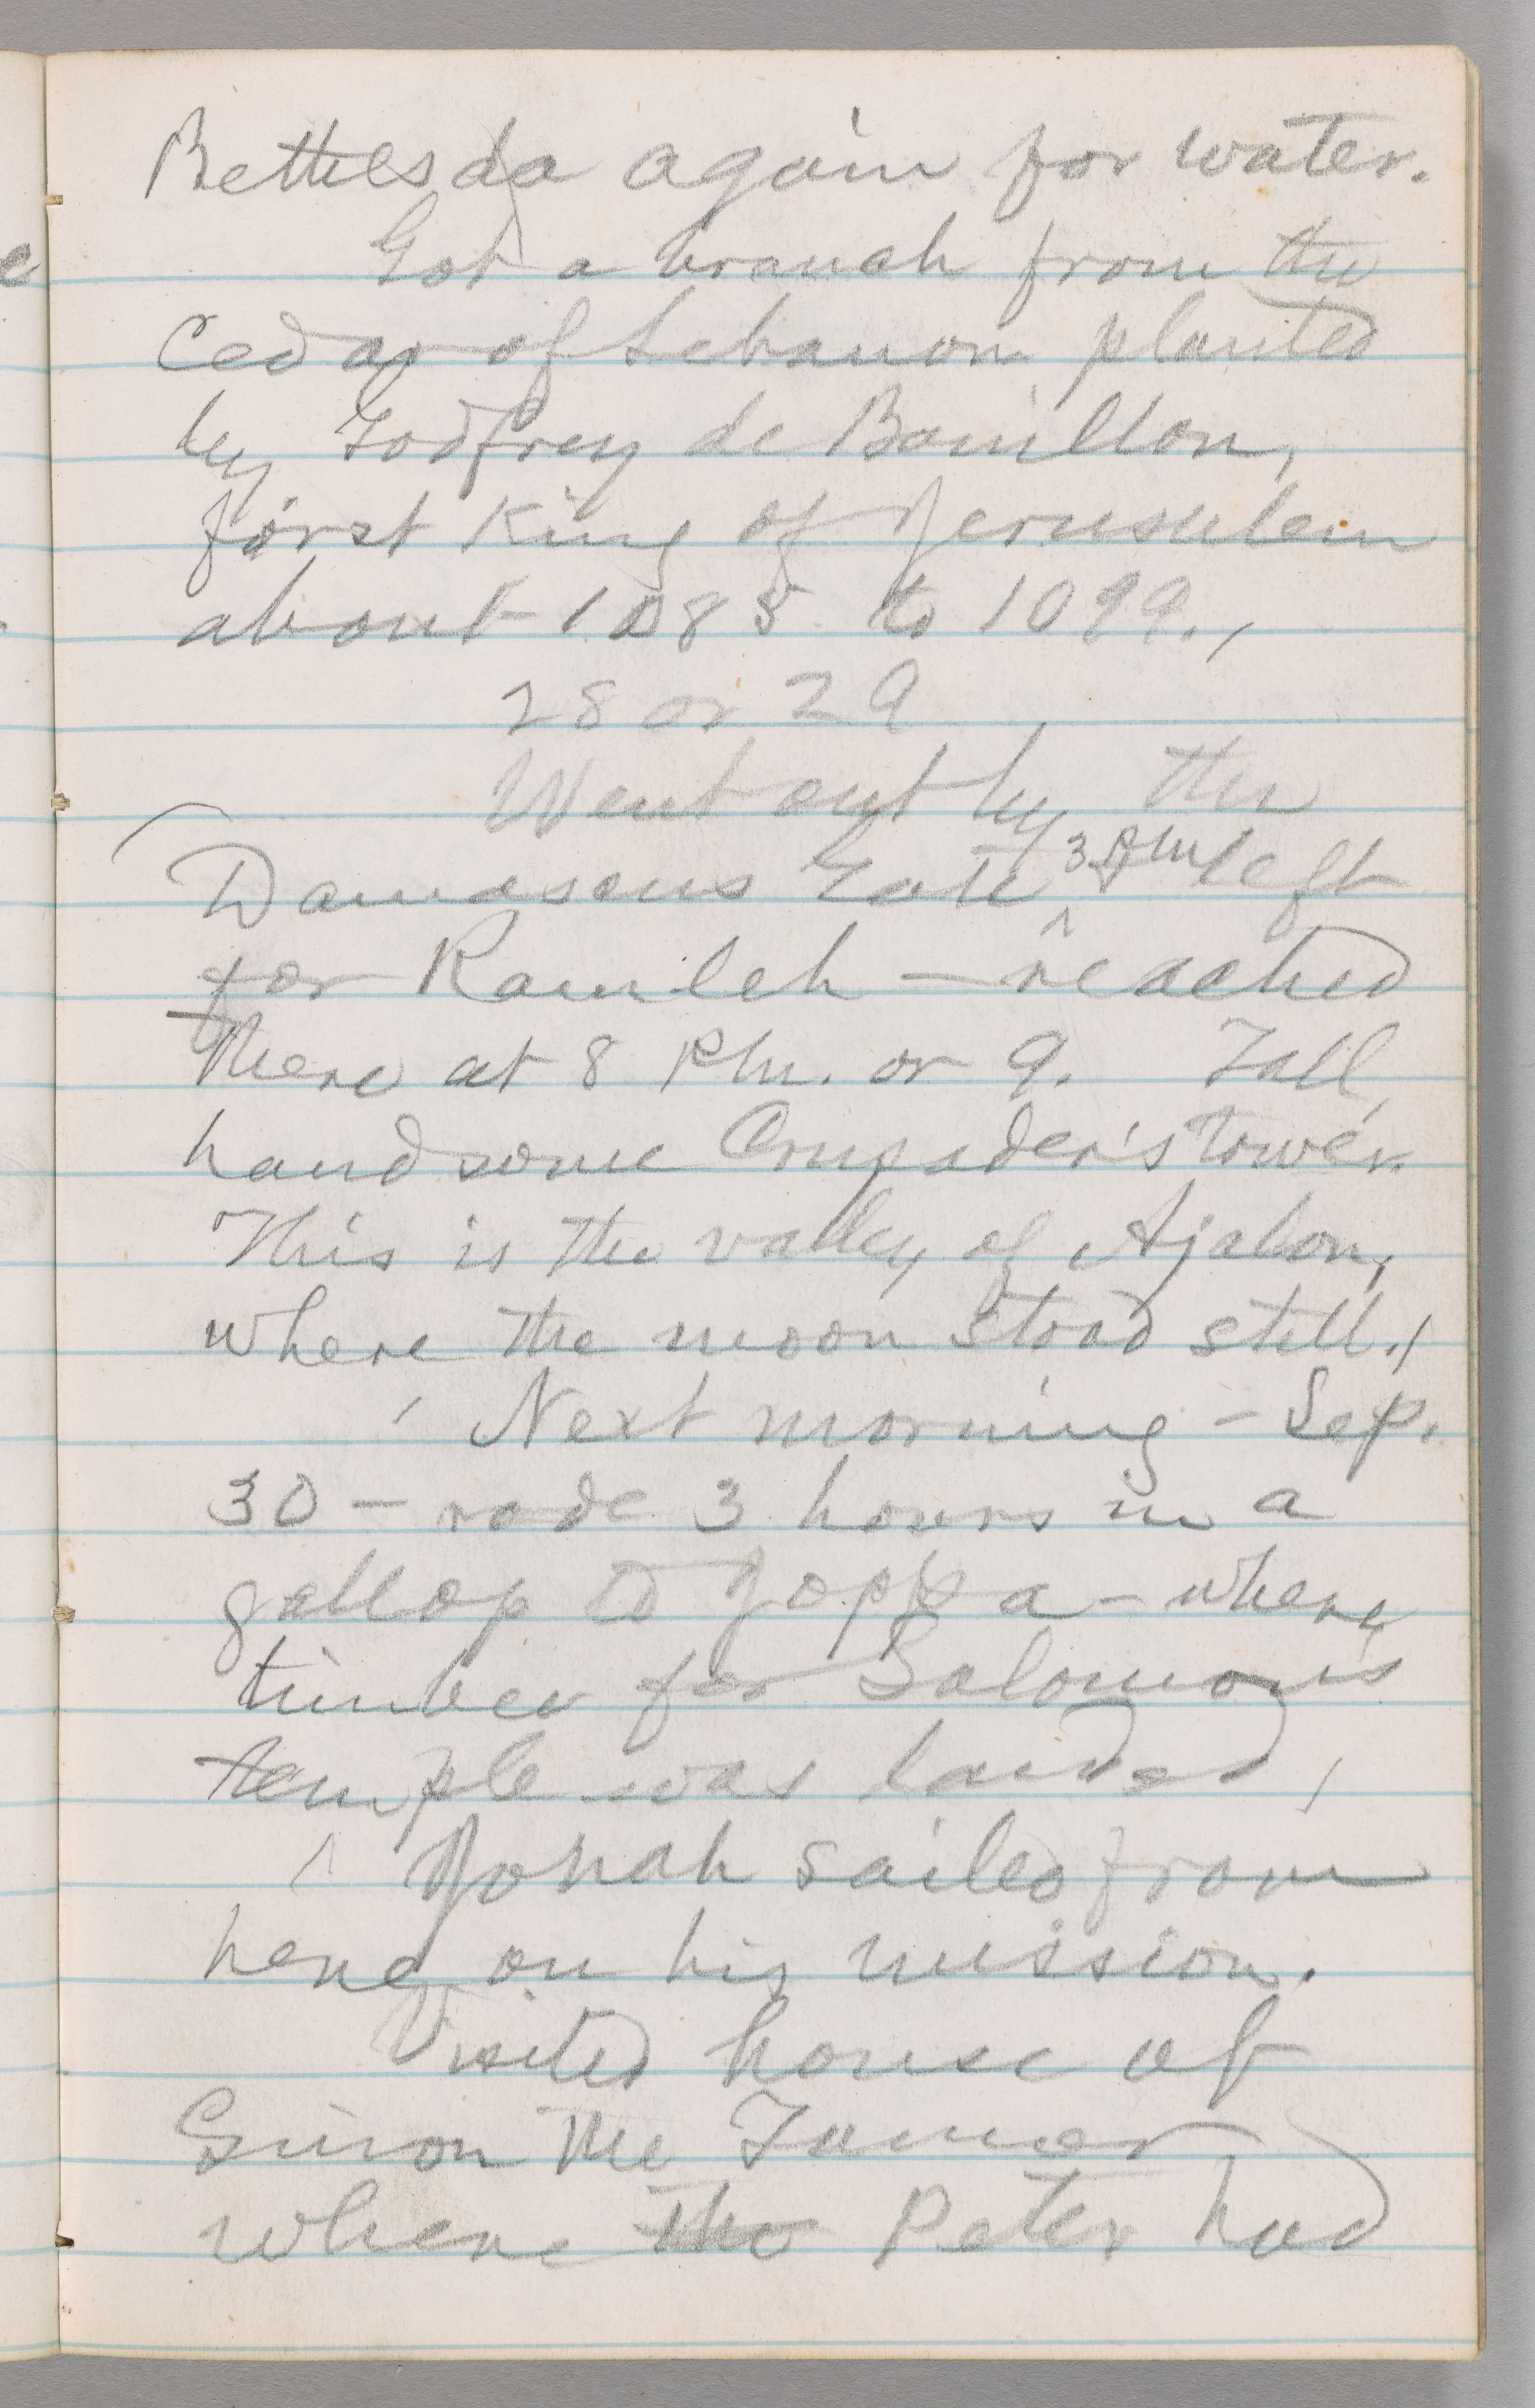 Bethesda again for water.
Got a branch from the
Cedar of Lebanon planted
by Godfrey de Bouillon,
first King of Jerusalem
about 1085 to 1099.,
28 or 29
Went out by the
Damascus Gate ^ 3 PM left
for Ramleh — reached
there at 8 PM. or 9. Tall,
handsome Crusader's tower.
This is the valley of Ajalon,
where the moon stood still.
Next morning – Sep.
30 – rode 3 hours in a
gallop to Joppa – where
timber for Solomon's
temple was landed,
Jonah sailed from
here on his mission.
Visited house of
Simon the Tanner
where the Peter had